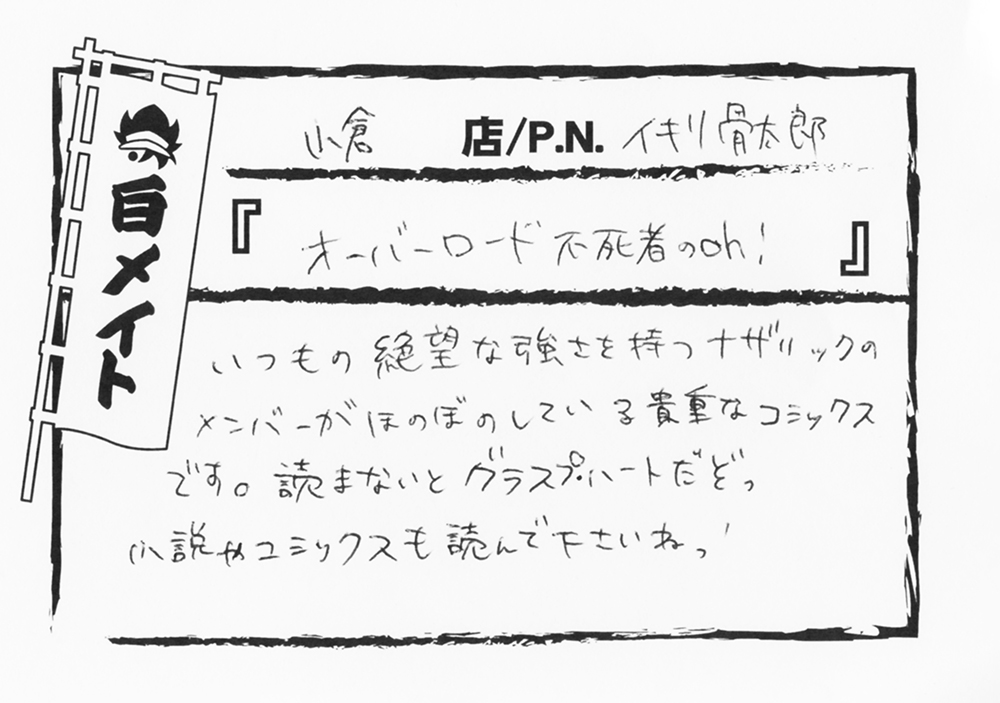 小倉 店/P.N. イキリ骨太郎
『オーバーロード 不死者のoh!』
いつもの絶望な強さを持つナザリックの
メンバーがほのぼのしている貴重なコミックス
です。読まないとグラスプ・ハートだどっ
小説やコミックスも読んで下さいねっ!
白メイト